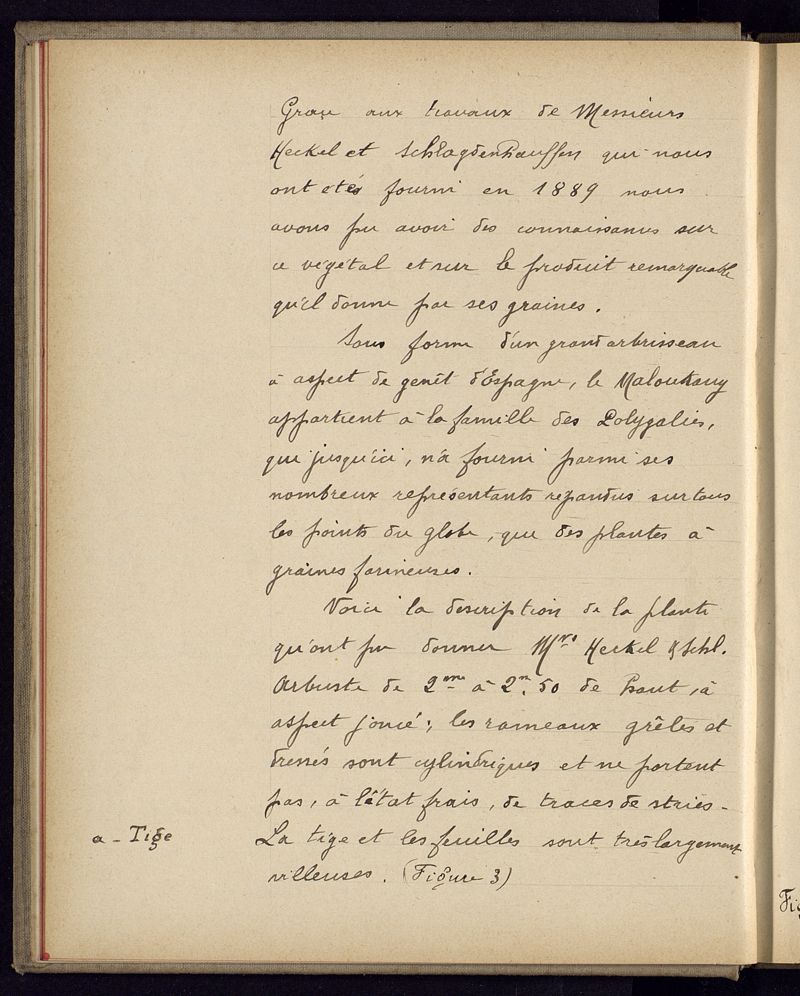 Grace aux travaux de Messieurs
Heckel et Schlagdenhauffen qui nous
ont étés fourni en 1889 nous
avons pu avoir des connaissances sur
ce végétal et sur le produit remarquable
qu'il donne par ses graines.
Sous forme d'un grand arbrisseau
à aspect de genêt d'Espagne, le Maloukang
appartient à la famille des Polygalées,
qui jusqu'ici, n'a fourni parmi ses
nombreux représentants repandus sur tous
les points du globe, que des plantes à
graines farineuses.
Voici la description de la plante
qu'ont pu donner Mrs Heckel & Schl.
Arbuste de 2me à 2m.50 de haut, à
aspect joncé; les rameaux grêles et
dressés sont cylindriques et ne portent
pas, à l'état frais, de traces de stries-
a - Tige
La tige et les feuilles sont très largement
villeuses. (Figure 3)
Fig